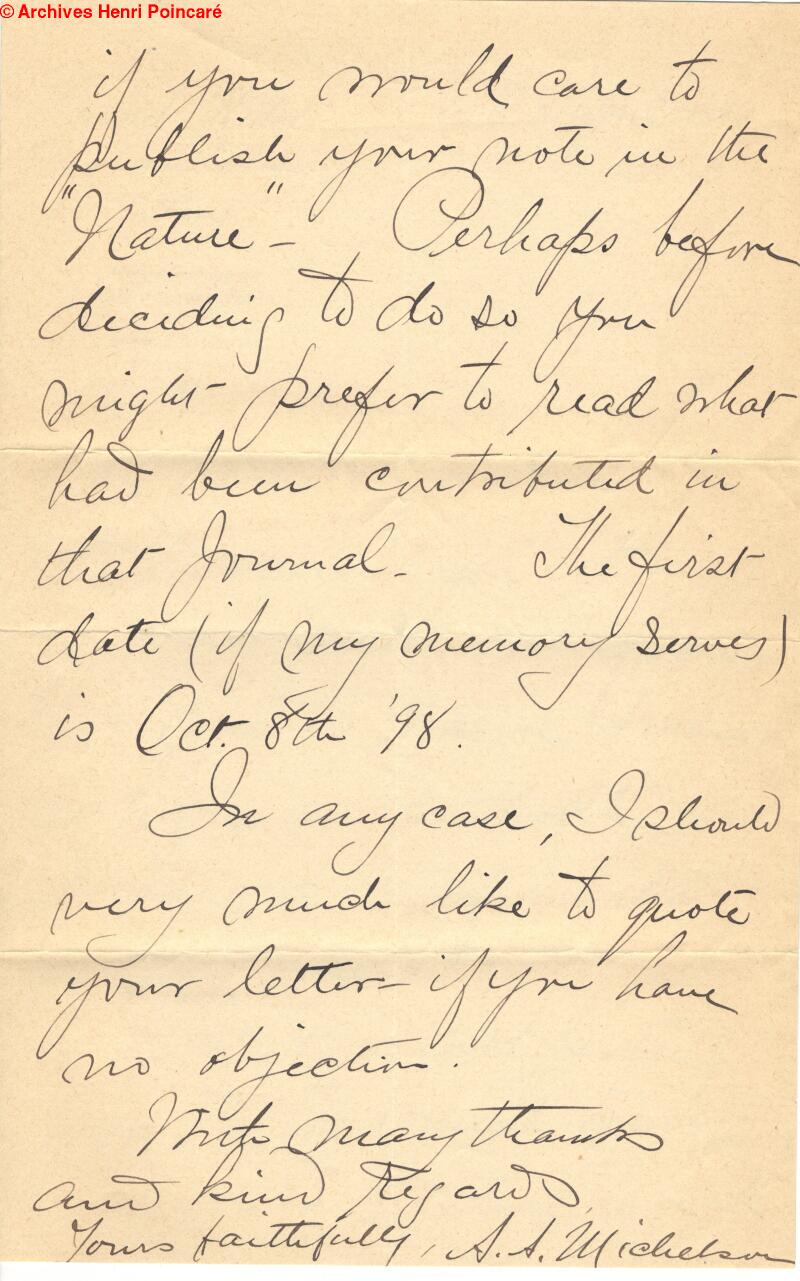 © Archives Henri Poincaré
if you would care to
publish your note in the
"Nature" - Perhaps before
deciding to do so you
might prefer to read what
had been contributed in
that Journal - The first
date (if my memory serves)
is Oct. 8th '98.
In any case, I should
very much like to quote
your letter - if you have
no objection.
With many thanks
and kind Regards
Yours faithfully, A.A. Michelson